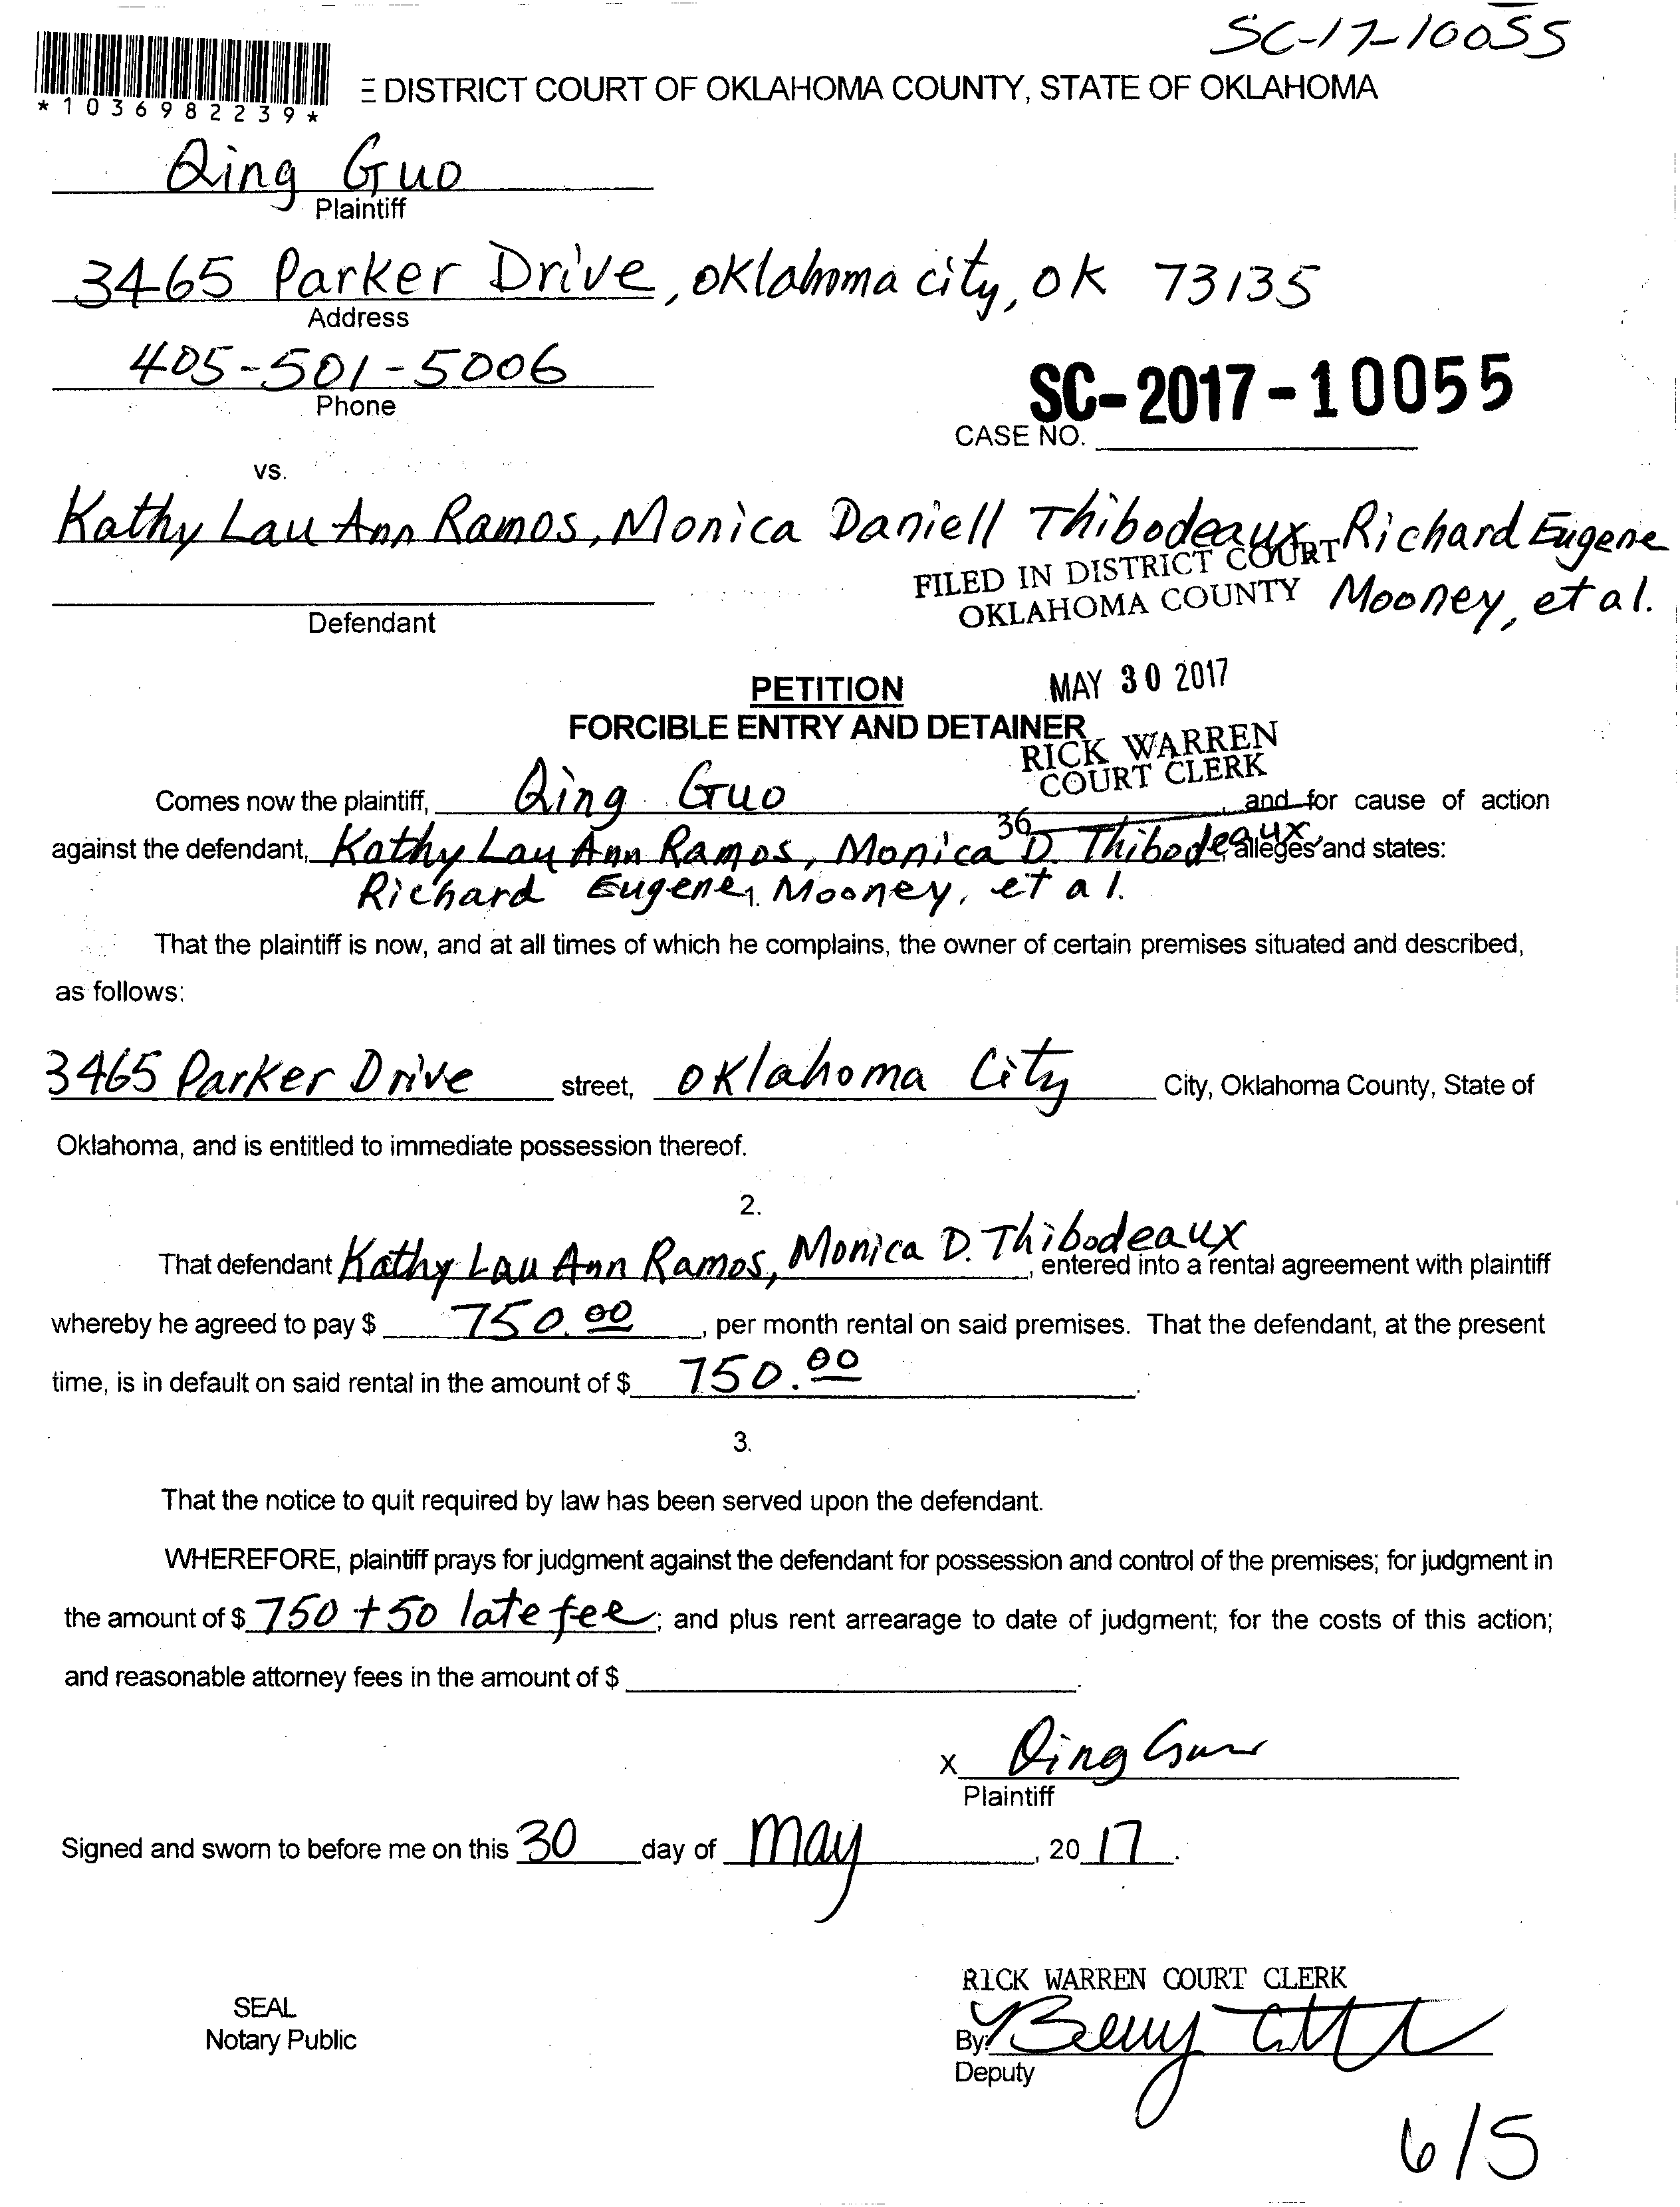 SC-17-10055
*1036982239*
E DISTRICT COURT OF OKLAHOMA COUNTY, STATE OF OKLAHOMA
Qing Guo
Plaintiff
3465 Parker Drive, Oklahoma city, OK 73135
Address
405-501-5006
Phone
SC-2017-10055
CASE NO.
vs.
Kathy Lau Ann Ramos, Monica Daniell Thibodeaux, Richard Eugene
Mooney, et al.
FILED IN DISTRICT COURT
OKLAHOMA COUNTY
Defendant
MAY 30 2017
PETITION
FORCIBLE ENTRY AND DETAINER
RICK WARREN
COURT CLERK
36
Comes now the plaintiff, Qing Guo, and for cause of action
against the defendant, Kathy Lau Ann Ramos, Monica D. Thibodeaux, alleges and states:
Richard Eugene Mooney, et al.
1.
That the plaintiff is now, and at all times of which he complains, the owner of certain premises situated and described,
as follows:
3465 Parker Drive street, Oklahoma City City, Oklahoma County, State of
Oklahoma, and is entitled to immediate possession thereof.
2.
That defendant Kathy Lau Ann Ramos, Monica D. Thibodeaux, entered into a rental agreement with plaintiff
whereby he agreed to pay $ 750.00, per month rental on said premises. That the defendant, at the present
time, is in default on said rental in the amount of $ 750.00.
3.
That the notice to quit required by law has been served upon the defendant.
WHEREFORE, plaintiff prays for judgment against the defendant for possession and control of the premises; for judgment in
the amount of $ 750 + 50 late fee; and plus rent arrearage to date of judgment; for the costs of this action;
and reasonable attorney fees in the amount of $ .
X Qing Guo
Plaintiff
Signed and sworn to before me on this 30 day of May, 2017.
RICK WARREN COURT CLERK
SEAL
Notary Public
By:
Deputy
6/5